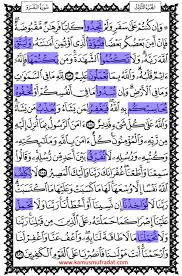 الجزء الثالث سورة البقرة
وَإِن كُنتُمْ عَلَىٰ سَفَرٍ وَلَمْ تَجِدُوا۟ كَاتِبًا فَرِهَٰنٌ مَّقْبُوضَةٌ
فَإِنْ أَمِنَ بَعْضُكُم بَعْضًا فَلْيُؤَدِّ ٱلَّذِى ٱؤْتُمِنَ أَمَٰنَتَهُۥ وَلْيَتَّقِ
ٱللَّهَ رَبَّهُۥ وَلَا تَكْتُمُوا۟ ٱلشَّهَٰدَةَ وَمَن يَكْتُمْهَا فَإِنَّهُۥٓ ءَاثِمٌ
قَلْبُهُۥ وَٱللَّهُ بِمَا تَعْمَلُونَ عَلِيمٌ ٢٨٣ لِّلَّهِ مَا فِى ٱلسَّمَٰوَٰتِ
وَمَا فِى ٱلْأَرْضِ وَإِن تُبْدُوا۟ مَا فِىٓ أَنفُسِكُمْ أَوْ تُخْفُوهُ
يُحَاسِبْكُم بِهِ ٱللَّهُ فَيَغْفِرُ لِمَن يَشَآءُ وَيُعَذِّبُ مَن يَشَآءُ
وَٱللَّهُ عَلَىٰ كُلِّ شَىْءٍ قَدِيرٌ ٢٨٤ ءَامَنَ ٱلرَّسُولُ بِمَآ أُنزِلَ إِلَيْهِ
مِن رَّبِّهِۦ وَٱلْمُؤْمِنُونَ كُلٌّ ءَامَنَ بِٱللَّهِ وَمَلَٰٓئِكَتِهِۦ
وَكُتُبِهِۦ وَرُسُلِهِۦ لَا نُفَرِّقُ بَيْنَ أَحَدٍ مِّن رُّسُلِهِۦ وَقَالُوا۟
سَمِعْنَا وَأَطَعْنَا غُفْرَانَكَ رَبَّنَا وَإِلَيْكَ ٱلْمَصِيرُ ٢٨٥ لَا يُكَلِّفُ
ٱللَّهُ نَفْسًا إِلَّا وُسْعَهَا لَهَا مَا كَسَبَتْ وَعَلَيْهَا مَا ٱكْتَسَبَتْ
رَبَّنَا لَا تُؤَاخِذْنَآ إِن نَّسِينَآ أَوْ أَخْطَأْنَا رَبَّنَا وَلَا تَحْمِلْ
عَلَيْنَآ إِصْرًا كَمَا حَمَلْتَهُۥ عَلَى ٱلَّذِينَ مِن قَبْلِنَا رَبَّنَا
وَلَا تُحَمِّلْنَا مَا لَا طَاقَةَ لَنَا بِهِۦ وَٱعْفُ عَنَّا وَٱغْفِرْ لَنَا
وَٱرْحَمْنَآ أَنتَ مَوْلَىٰنَا فَٱنصُرْنَا عَلَى ٱلْقَوْمِ ٱلْكَٰفِرِينَ ٢٨٦
www.kamusmufradat.com